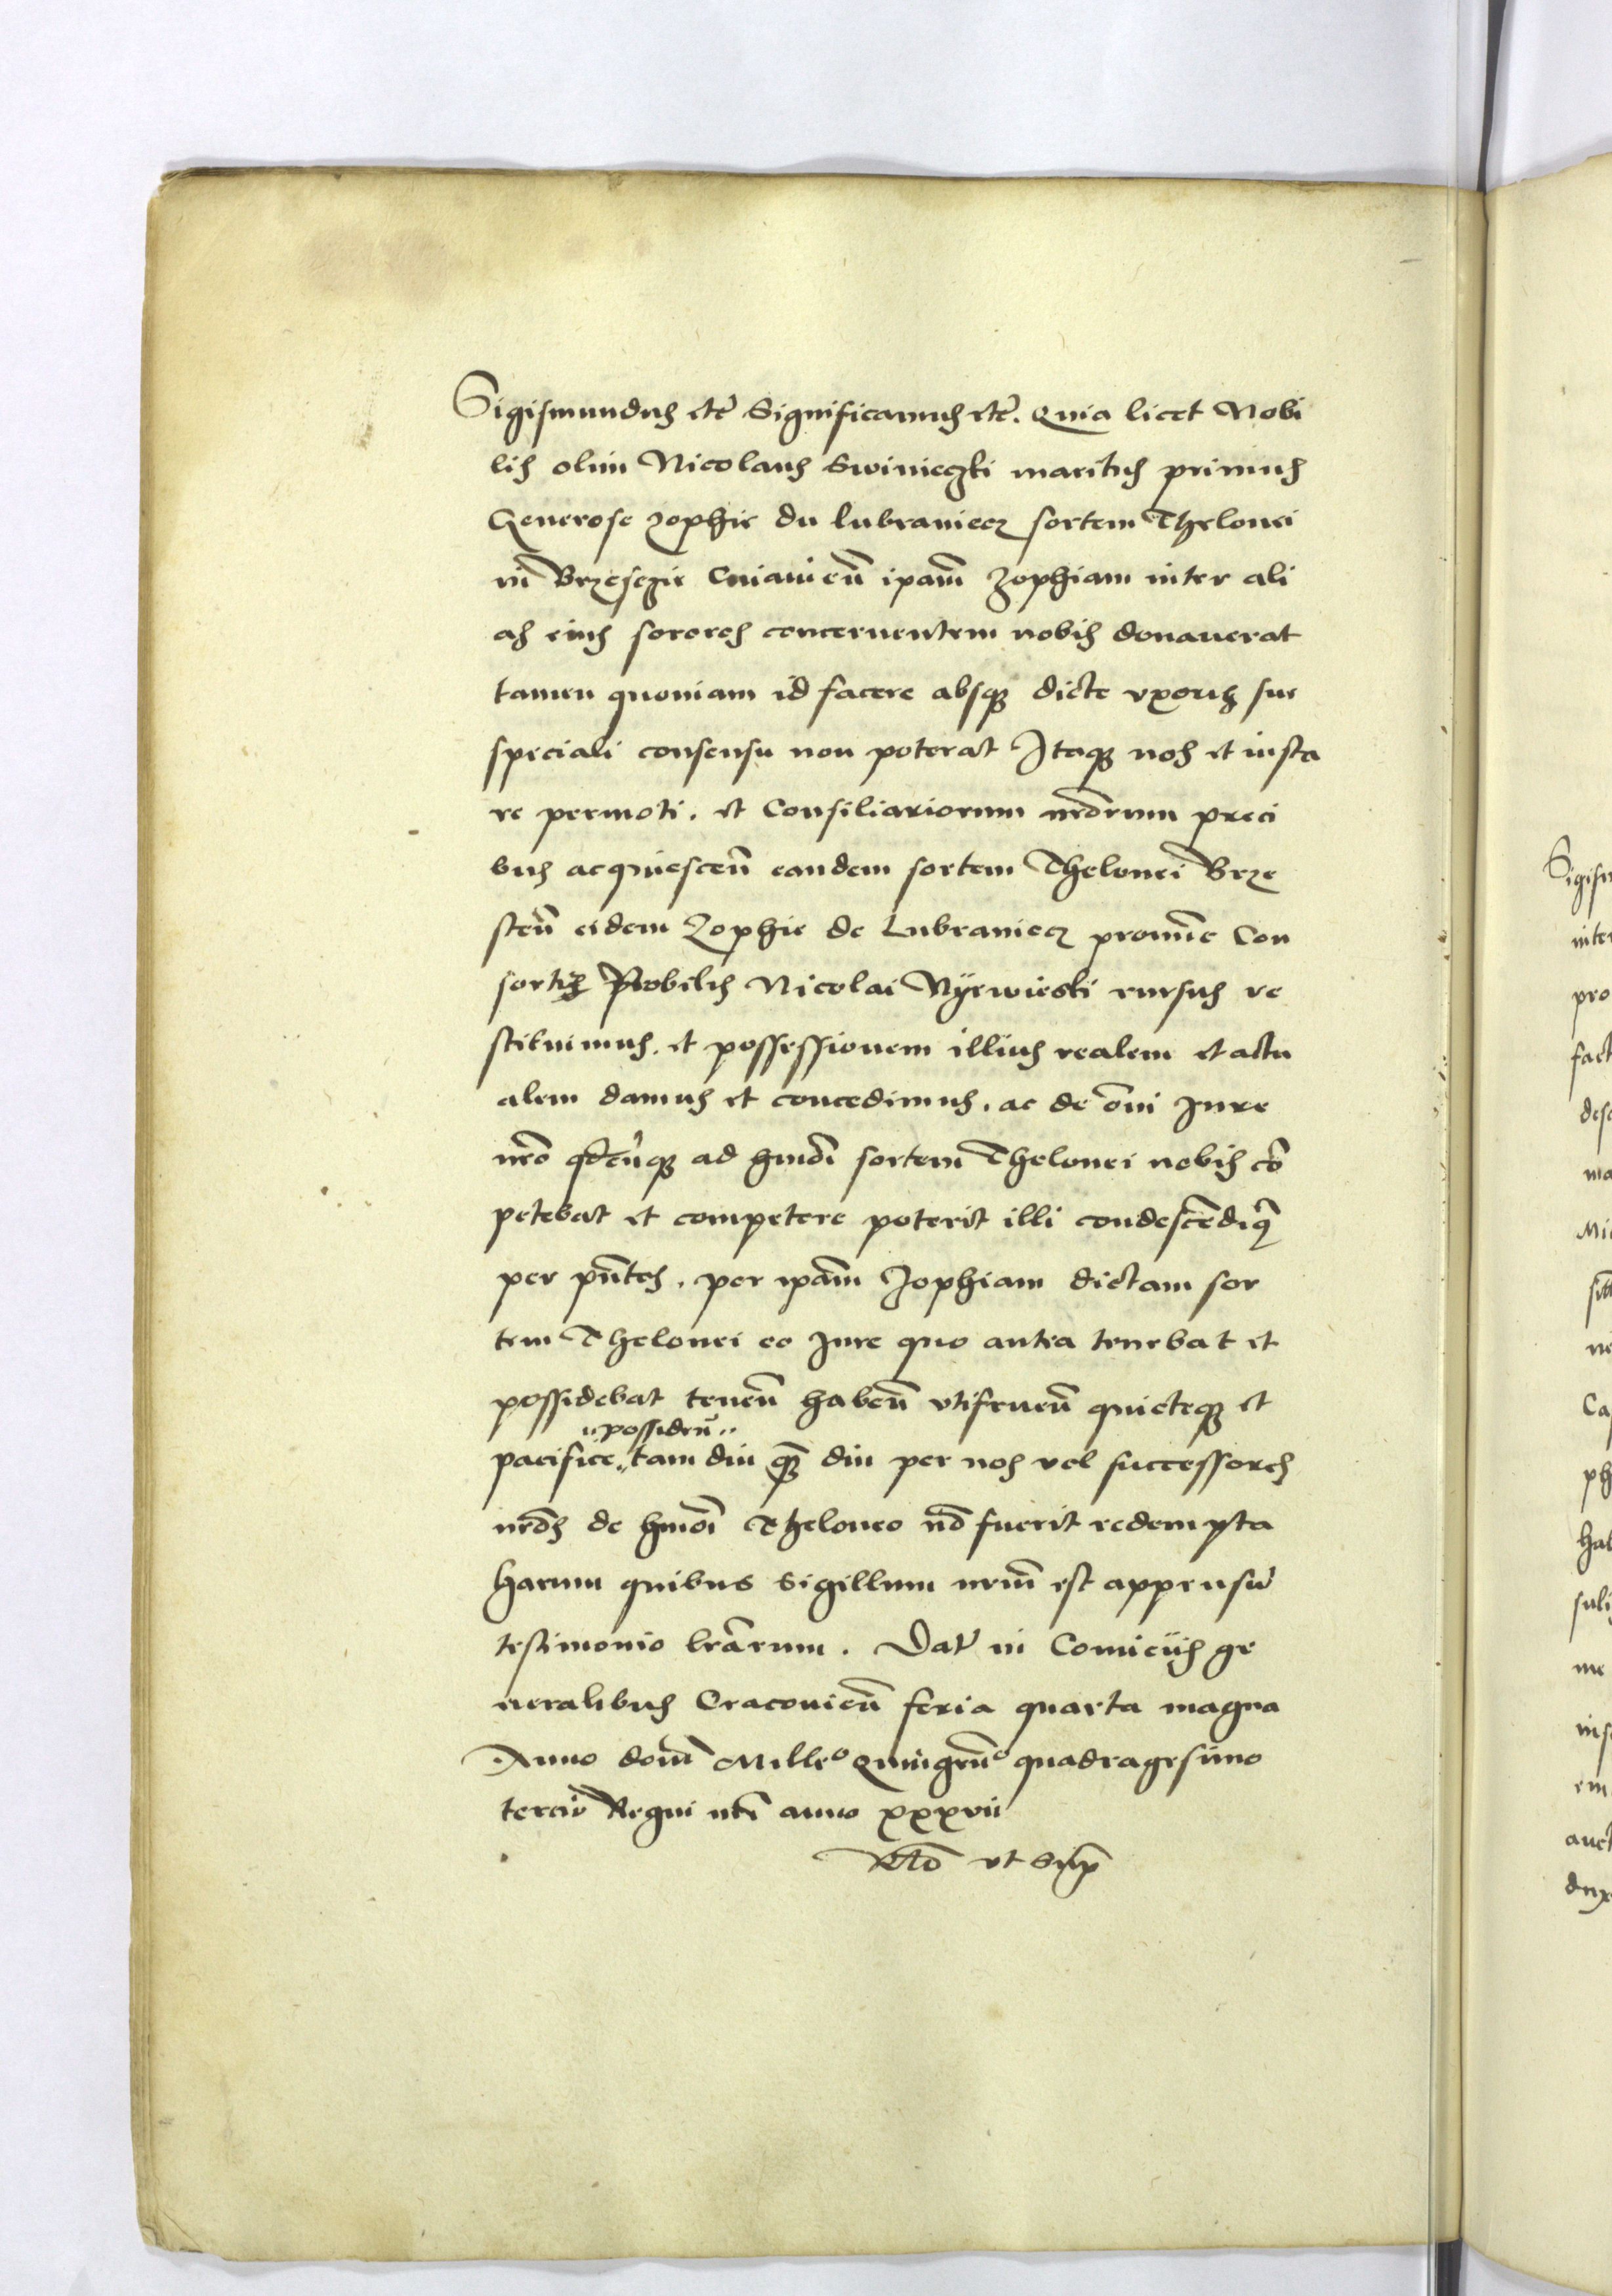 Sigismundus etc̃ Significamus etc̃. Quia licet Nobi
lis olim Nicolaus Swinieczki maritus primus
Generose Zophie du lubraniecz sortem Thelonei
in Brzesczie Cuiauieñ ipam̃ Zophiam inter ali
as eius sorores concernentem nobis donauerat
tamen quoniam id facere absqꝫ dicte vxoris sue
speciali consensu non poterat Itaqꝫ nos et iusta
re permoti. et Consiliariorum nr̃orum preci
bus acquiesceñ eandem sortem Thelonei Brze
steñ eidem Zophie de Lubraniecz pronũc Con
sortis Nobilis Nicolai Nyewieski rursus re
stituimus. et possessionem illius realem et actu
alem damus et concedimus. ac de õmi Jure
nr̃o qdcũqꝫ ad hmõi sortem Thelonei nobis cõ
petebat et competere poterit illi condescẽdimꝰ
per pñtes. per ipam̃ Zophiam dictam sor
tem Thelonei eo Jure quo antea tenebat et
possidebat teneñ habeñ vtifrueñ quieteqꝫ et
possideñ
pacifice tam diu qꝫ̃ diu per nos vel successores
nr̃os de hmõi Theloneo nõ fuerit redempta
harum quibus Sigillum nrũm est appensũ
testimonio lrãrum. Dat̃ in Comiciis ge
neralibus Cracouieñ feria quarta magna
Anno dom̃ Milleº Quingeñº quadragesimo
tercio Regni nr̃i anno xxxvii
Rlõ vt Sup̃